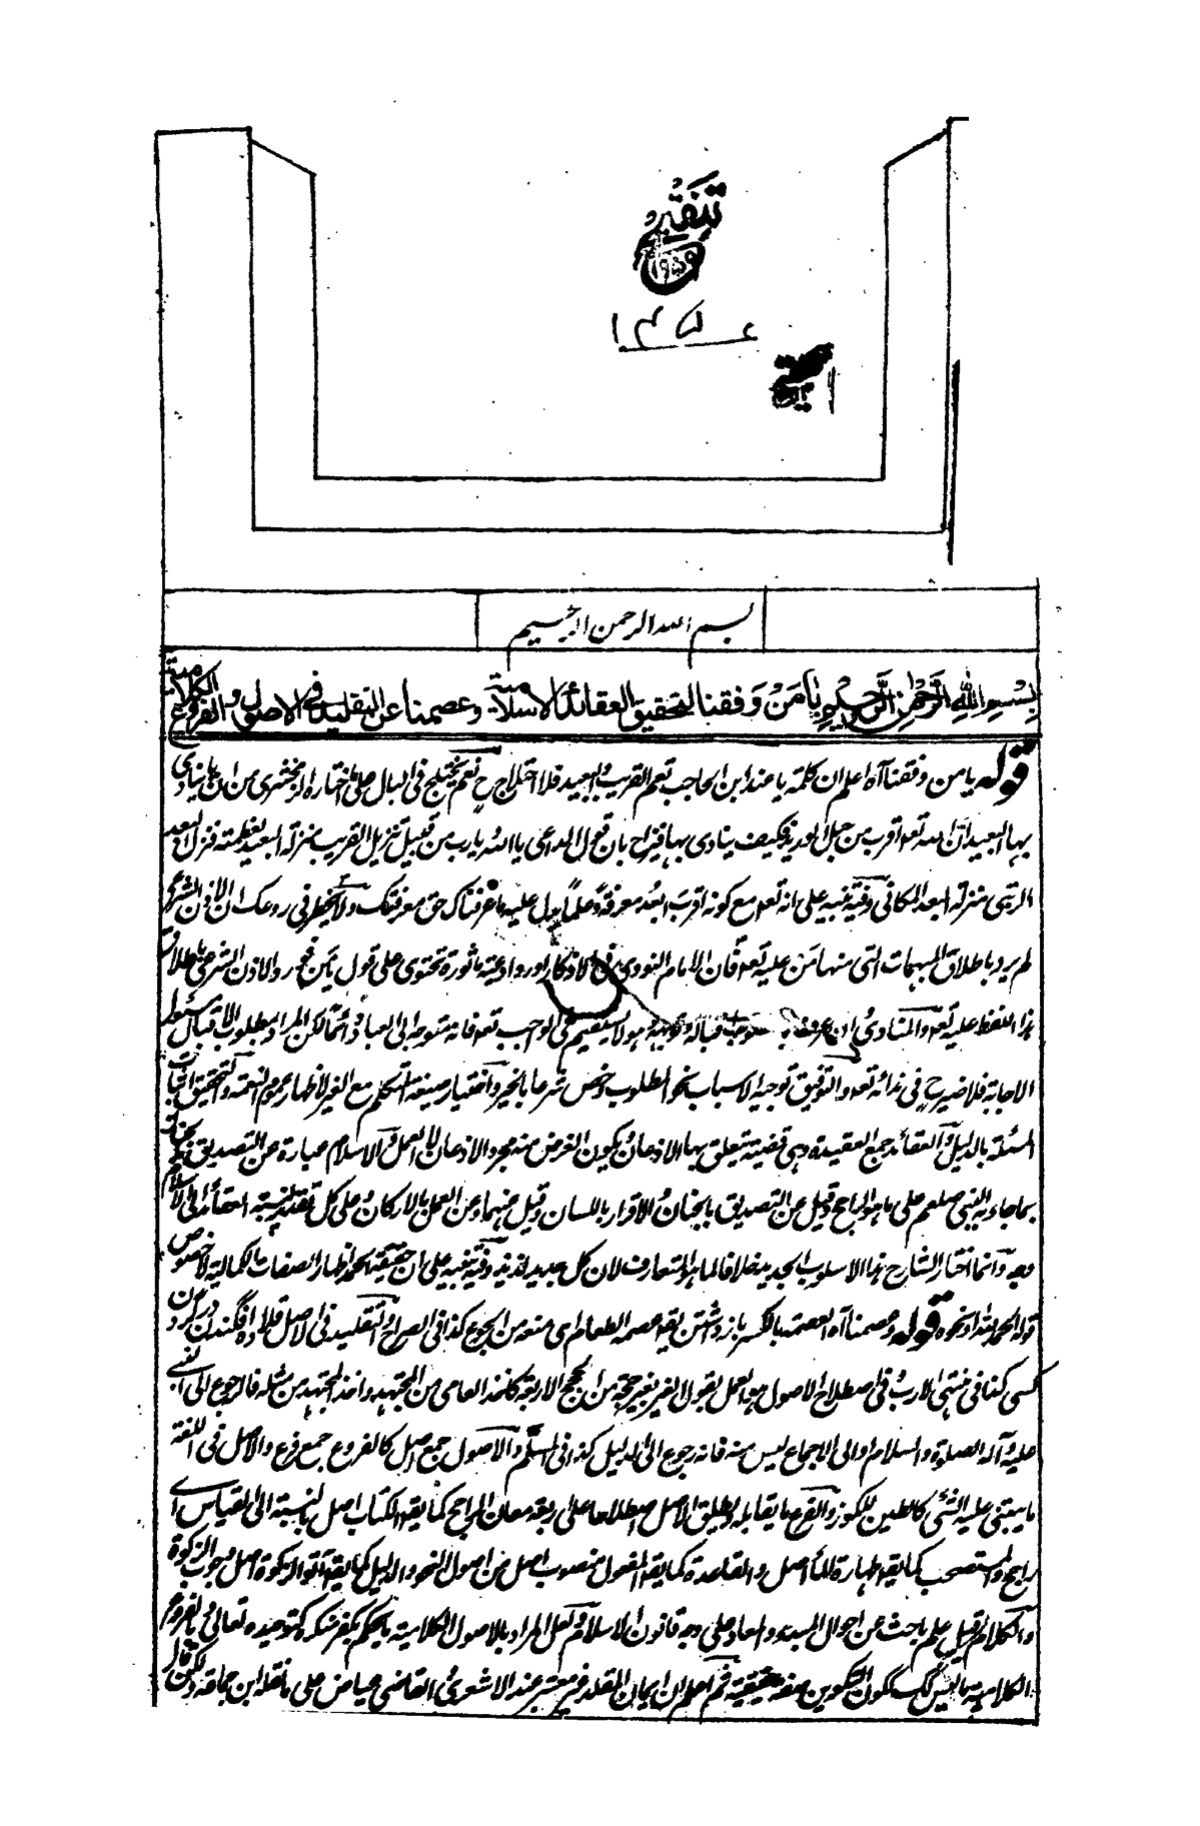 تنقيد
۱۹۵۹
بسم الله الرحمن الرحيم
بِسْمِ اللهِ الرَّحْمٰنِ الرَّحِيْمِ يَا مَنْ وَفقنا لتحقيق العقائد الاسلامية وعصمنا عن التقليد في الاصول والفروع الكلامية
قوله يا من وفقنا آه اعلم ان كلمة يا عند ابن الحاجب تعم القريب والبعيد فلا اختلاج ح نعم يختلج في البال على ما اختاره الزمخشري من ان يا ينادى
بها البعيد ان الله تعه اقرب من حبل الوريد فكيف ينادى بها فيزاح بان قول الداعي يا الله يا رب من قبيل تنزيل القريب منزلة البعيد لعظمته فنزل البعد
الرتبي منزلة البعد المكاني وفيه تنبيه على انه تعه مع كونه اقرب ابعد معرفة وعلما يدل عليه ما عرفناك حق معرفتك ولا يخطر في روعك ان الاذن الشرعي
لم يرد باطلاق المبهمات التي منها من عليه تعه فان الامام النووي في الاذكار اورد ادعية ماثورة تحتوي على قول يا من والاذن الشرعي باطلاق
هذا اللفظ عليه تعه والمنادى ان عرف بـ وهو لا يستقيم في الواجب تعه فانه متوجه الى العباد دائما لكن المراد مطلوب الاقبال
الاجابة فلا ضير ح في ندائه تعه والتوفيق توجيه الاسباب نحو المطلوب وخص شرعا بالخير واختيار صيغة المتكلم مع الغير لاظهار عموم النعمة والتحقيق اثبات
المسئلة بالدليل والعقائد جمع العقيدة وهي قضية يتعلق بها الاذعان ويكون الغرض منه مجرد الاذعان لا العمل والاسلام عبارة عن التصديق
بما جاء به النبي صلعم على ما هو الراجح وقيل عن التصديق بالجنان والاقرار باللسان وقيل عنهما وعن العمل بالاركان وعلى كل تقدير لنسبة العقائد الى الاسلام
وجه وانما اختار الشارح هذا الاسلوب الجديد خلافا لما هو المتعارف لان كل جديد لذيذ وفيه تنبيه على ان حقيقة الحمد اظهار الصفات الكمالية لا خصوص
قوله الحمد لله او نحوه قوله وعصمنا آه العصمة بالكسر باز داشتن يقه عصمه الطعام اى منعه من الجوع كذا في الصراح والتقليد في الاصل قلاده افگندن در گردن
كسى كذا في منتهى الارب وفي اصطلاح الاصول هو العمل بقول الغير بغير حجة من الحجج الاربعة كاخذ العامي من المجتهد واخذ المجتهد من مثله فالرجوع الى النبي
عليه وآله الصلوة والسلام او الى الاجماع ليس منه فانه رجوع الى الدليل كذا في المسلم والاصول جمع اصل كالفروع جمع فرع والاصل في اللغة
ما يبتنى عليه الشئ كالطين للكوز والفرع ما يقابله ويطلق الاصل اصطلاحا على اربعة معان الراجح كما يقه الكتاب اصل بالنسبة الى القياس اي
راجح والمستصحب كما يقه طهارة الماء اصل والقاعدة كما يقه المفعول منصوب اصل من اصول النحو والدليل كما يقه آتوا الزكوة اصل وجوب الزكوة
والكلام قيل علم باحث عن احوال المبدء والمعاد على وجه قانون الاسلام ولعل المراد بالاصول الكلامية ما يحكم بكفر منكره كتوحيده تعالى وبالفروع
الكلامية ما ليس كك ككون التكوين صفة حقيقية ثم اعلم ان ايمان المقلد غير معتبر عند الاشعري والقاضي عياض على ما نقله ابن جماعة ولكن قال